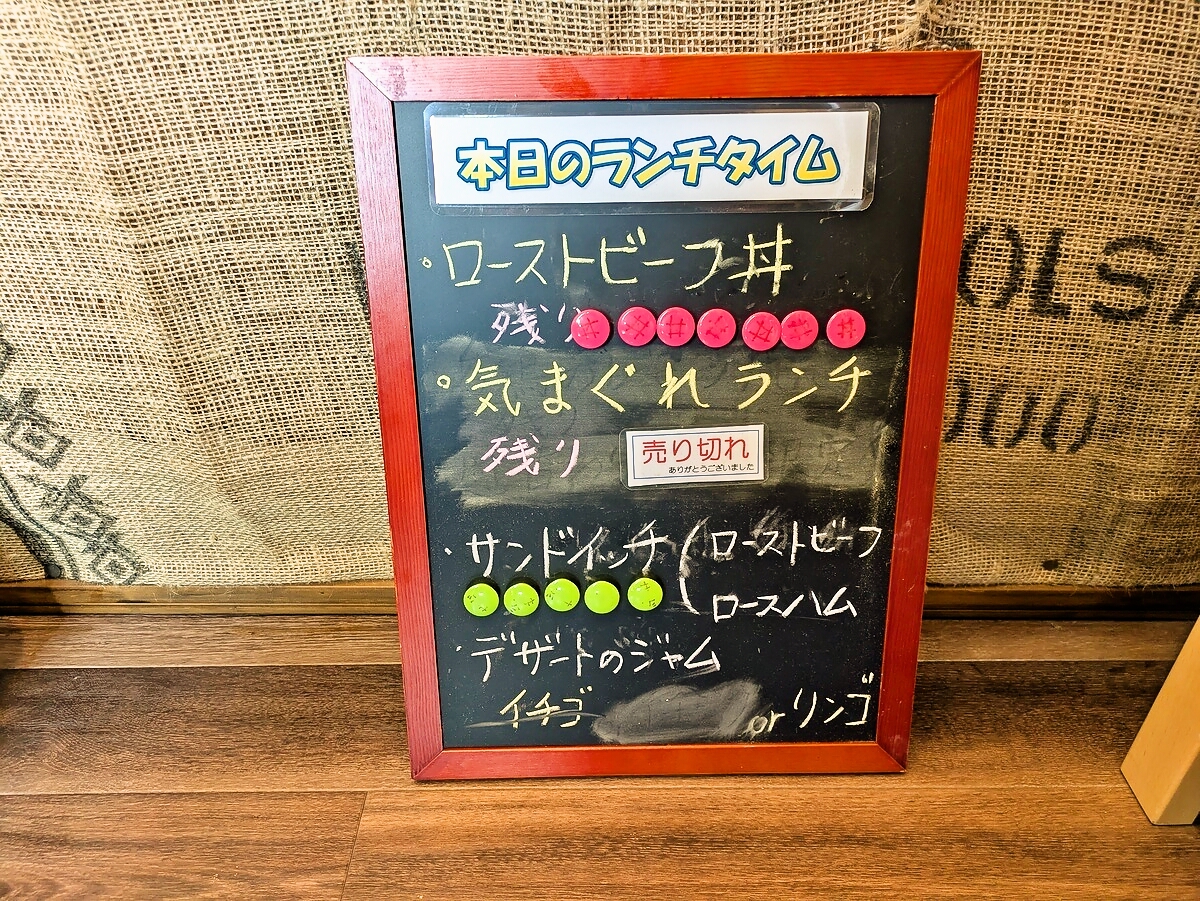 本日のランチタイム
ローストビーフ丼
残り
気まぐれランチ
残り
売り切れ
ありがとうございました
サンドイッチ(ローストビーフ
ロースハム
デザートのジャム
イチゴ or リンゴ